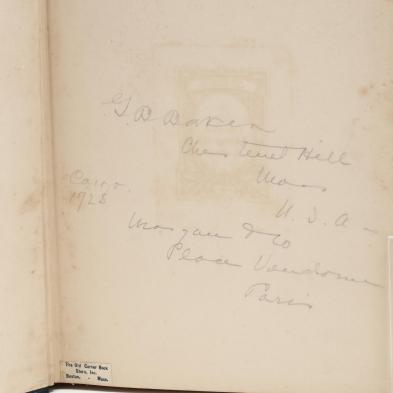 G D Baker
Chestnut Hill
Mass
U. S. A -
Cairo.
1928
Morgan & Co
Place Vendome
Paris
The Old Corner Book
Store, Inc.
Boston, - Mass.